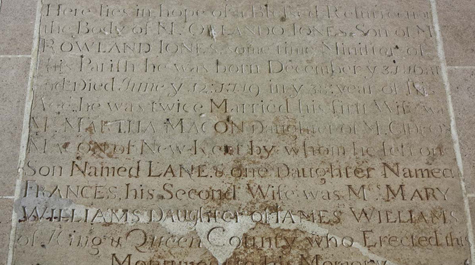 Here lies in hope of a
the Body of Mr. ORLANDO JONES Son of Mr.
ROWLAND JONES some time Minister of
this Parish he was born December ye 31
and Died June ye 12 1719 in ye year of his
Age he was twice Married his first Wife was
Mrs. MARTHA MACON Daughter of Mr. Gideon
MACON of New Kent by whom he left one
Son Named LANE, & one Daughter Named
FRANCES, his Second Wife was Mrs. MARY
WILLIAMS Daughter of JAMES WILLIAMS
of King & Queen County who Erected this
Monument to his Memory